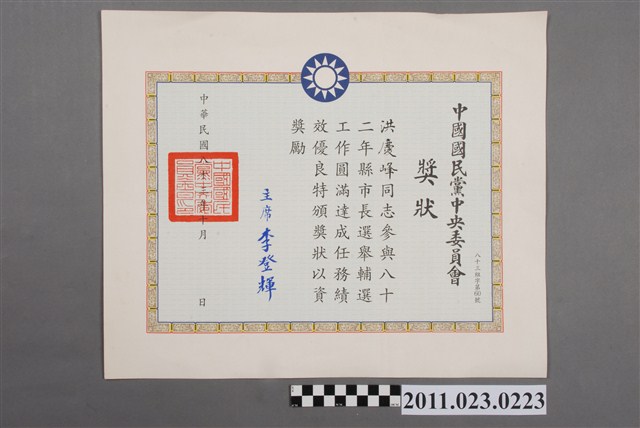 中國國民黨中央委員會
獎狀
八十三組字第60號
洪慶峰同志參與八十
二年縣市長選舉輔選
工作圓滿達成任務績
效優良特頒獎狀以資
獎勵
主席 李登輝
中華民國八十三年十月 日
2011.023.0223